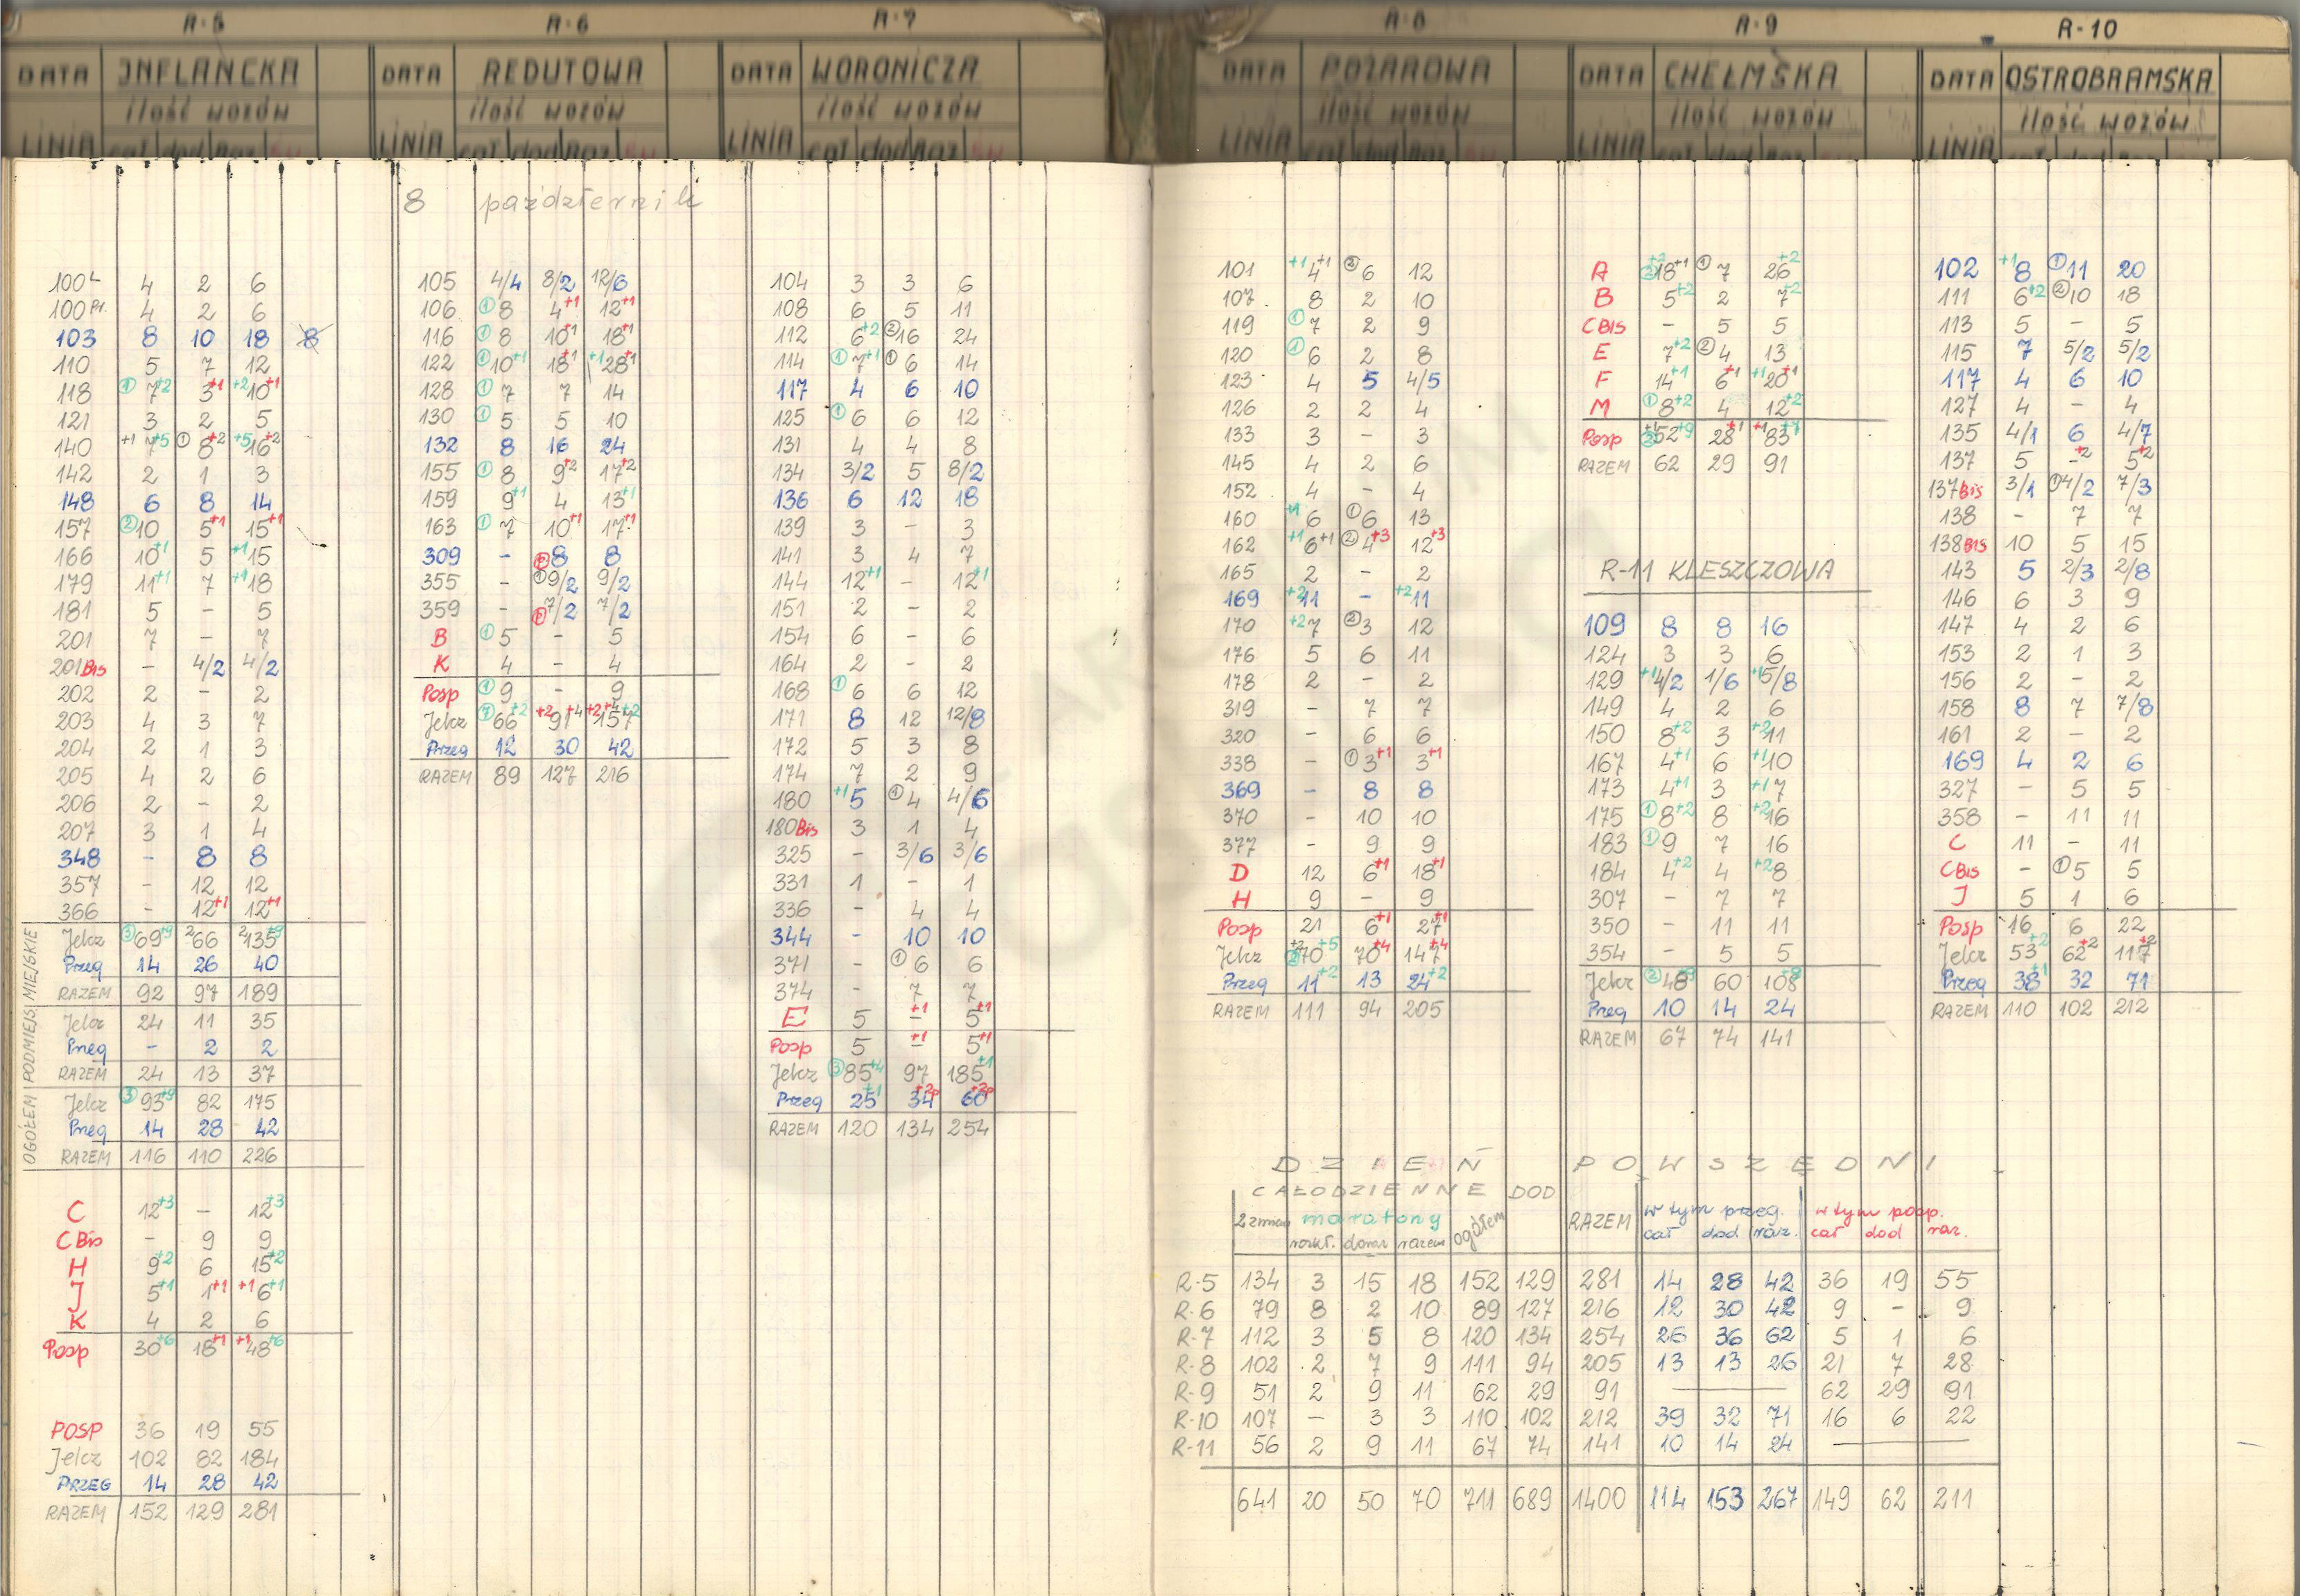 R-5 R-6 R-7 R-8 R-9 R-10
DATA INFLANCKA DATA REDUTOWA DATA WORONICZA DATA POŻAROWA DATA CHEŁMSKA DATA OSTROBRAMSKA
ilość wozów ilość wozów ilość wozów ilość wozów ilość wozów ilość wozów
LINIA cał dod Raz LINIA cał dod Raz LINIA cał dod Raz LINIA cał dod Raz LINIA cał dod Raz LINIA
8 październik
100L 4 2 6
100Pr. 4 2 6
103 8 10 18 8
110 5 7 12
118 ① 7+2 3+1 +2 10+1
121 3 2 5
140 +1 7+5 ① 8+2 +5 16+2
142 2 1 3
148 6 8 14
157 ② 10 5+1 15+1
166 10+1 5 +1 15
179 11+1 7 +1 18
181 5 - 5
201 7 - 7
201Bis - 4/2 4/2
202 2 - 2
203 4 3 7
204 2 1 3
205 4 2 6
206 2 - 2
207 3 1 4
348 - 8 8
357 - 12 12
366 - 12+1 12+1
MIEJSKIE
Jelcz ③ 69+9 2 66 2 135+9
Przeg 14 26 40
RAZEM 92 97 189
PODMIEJS
Jelcz 24 11 35
Przeg - 2 2
RAZEM 24 13 37
OGÓŁEM
Jelcz ③ 93+9 82 175
Przeg 14 28 42
RAZEM 116 110 226
C 12+3 - 12+3
CBis - 9 9
H 9+2 6 15+2
J 5+1 1+1 +1 6+1
K 4 2 6
Posp 30+6 18+1 +1 48+6
POSP 36 19 55
Jelcz 102 82 184
PRZEG 14 28 42
RAZEM 152 129 281
105 4/4 8/2 12/6
106 ① 8 4+1 12+1
116 ① 8 10+1 18+1
122 ① 10+1 18+1 +1 28+1
128 ① 7 7 14
130 ① 5 5 10
132 8 16 24
155 ① 8 9+2 17+2
159 9+1 4 13+1
163 ① 7 10+1 17+1
309 - ① 8 8
355 - ① 9/2 9/2
359 - ① 7/2 7/2
B ① 5 - 5
K 4 - 4
Posp ① 9 - 9
Jelcz ⑦ 66+2 +2 91+4 +2+4 157+2
Przeg 12 30 42
RAZEM 89 127 216
104 3 3 6
108 6 5 11
112 6+2 ② 16 24
114 ① 7+1 ① 6 14
117 4 6 10
125 ① 6 6 12
131 4 4 8
134 3/2 5 8/2
136 6 12 18
139 3 - 3
141 3 4 7
144 12+1 - 12+1
151 2 - 2
154 6 - 6
164 2 - 2
168 ① 6 6 12
171 8 12 12/8
172 5 3 8
174 7 2 9
180 +1 5 ① 4 4/6
180Bis 3 1 4
325 - 3/6 3/6
331 1 - 1
336 - 4 4
344 - 10 10
371 - ① 6 6
374 - 7 7
E 5 -+1 5+1
Posp 5 -+1 5+1
Jelcz ③ 85+4 97 185+1
Przeg 25+1 34+2p 60+2p
RAZEM 120 134 254
101 +1 4+1 ② 6 12
107 8 2 10
119 ① 7 2 9
120 ① 6 2 8
123 4 5 4/5
126 2 2 4
133 3 - 3
145 4 2 6
152 4 - 4
160 +1 6 ① 6 13
162 +1 6+1 ② 4+3 12+3
165 2 - 2
169 +2 11 - +2 11
170 +2 7 ② 3 12
176 5 6 11
178 2 - 2
319 - 7 7
320 - 6 6
338 - ① 3+1 3+1
369 - 8 8
370 - 10 10
377 - 9 9
D 12 6+1 18+1
H 9 - 9
Posp 21 6+1 27+1
Jelcz +2 ② 70+5 70+4 147+4
Przeg 11+2 13 24+2
RAZEM 111 94 205
A +2 ② 18+1 ① 7 26+2
B 5+2 2 7+2
CBIS - 5 5
E 7+2 ② 4 13
F 14+1 6+1 +1 20+1
M ① 8+2 4 12+2
Posp +1 ③ 52+9 28+1 +1 83+7
RAZEM 62 29 91
R-11 KLESZCZOWA
109 8 8 16
124 3 3 6
129 +1 4/2 1/6 +1 5/8
149 4 2 6
150 8+2 3 +2 11
167 4+1 6 +1 10
173 4+1 3 +1 7
175 ① 8+2 8 +2 16
183 ① 9 7 16
184 4+2 4 +2 8
307 - 7 7
350 - 11 11
354 - 5 5
Jelcz ② 48+9 60 108+9
Przeg 10 14 24
RAZEM 67 74 141
102 +1 8 ① 11 20
111 6+2 ② 10 18
113 5 - 5
115 7 5/2 5/2
117 4 6 10
127 4 - 4
135 4/1 6 4/7
137 5 -+2 5+2
137Bis 3/1 ① 4/2 7/3
138 - 7 7
138BIS 10 5 15
143 5 2/3 2/8
146 6 3 9
147 4 2 6
153 2 1 3
156 2 - 2
158 8 7 7/8
161 2 - 2
169 4 2 6
327 - 5 5
358 - 11 11
C 11 - 11
CBis - ① 5 5
J 5 1 6
Posp 16 6 22
Jelcz 53+2 62+2 117+2
Przeg 38+1 32 71
RAZEM 110 102 212
DZIEŃ POWSZEDNI
CAŁODZIENNE DOD RAZEM w tym przeg. w tym posp.
2 zmian maratony ogółem
rozkł. dodat razem cał dod raz. cał dod raz.
R-5 134 3 15 18 152 129 281 14 28 42 36 19 55
R-6 79 8 2 10 89 127 216 12 30 42 9 - 9
R-7 112 3 5 8 120 134 254 26 36 62 5 1 6
R-8 102 2 7 9 111 94 205 13 13 26 21 7 28
R-9 51 2 9 11 62 29 91 — 62 29 91
R-10 107 - 3 3 110 102 212 39 32 71 16 6 22
R-11 56 2 9 11 67 74 141 10 14 24 —
641 20 50 70 711 689 1400 114 153 267 149 62 211